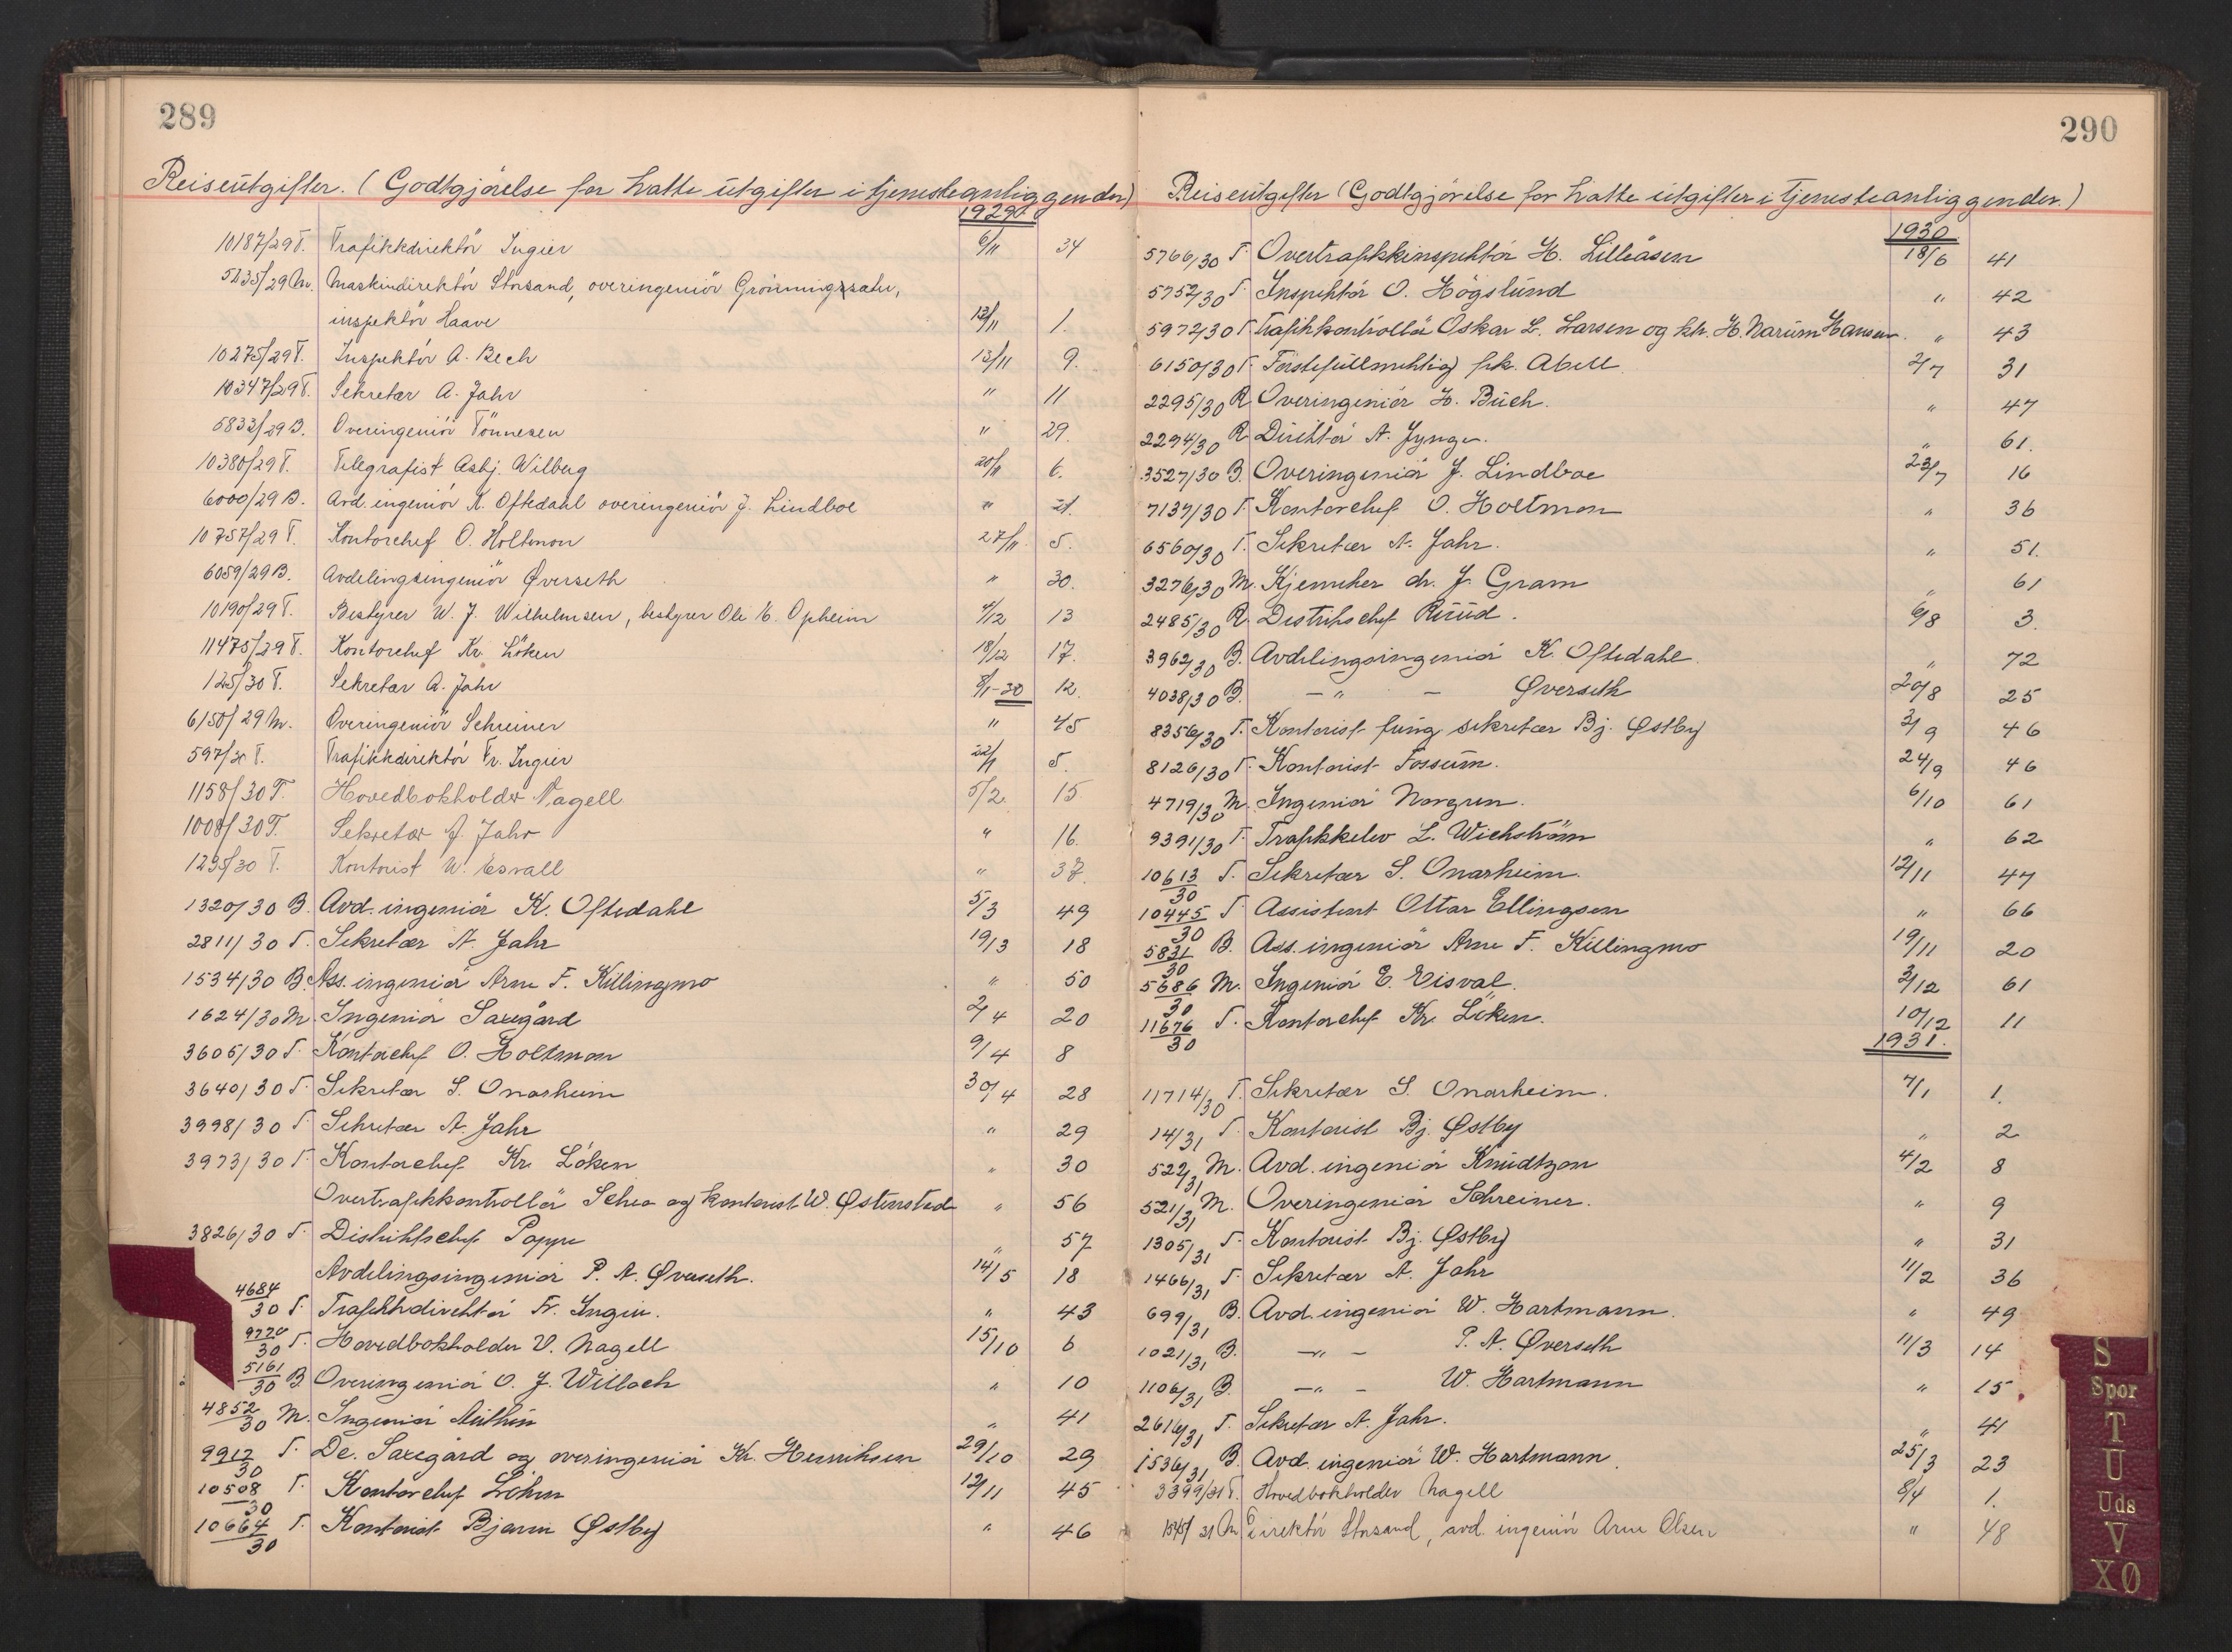 289
Reiseutgifter. (Godtgjörelse for hatte utgifter i tjenesteanliggender)
1929
10187/29 T. Trafikkdirektör Ingier 6/11 34
5235/29 M. Maskindirektör Storsand, overingeniör Grönningsæter,
inspektör Haave 13/11 1.
10275/29 T. Inspektör A. Bech 13/11 9.
10347/29 T. Sekretær A. Jahr " 11
5833/29 B. Overingeniör Tönnesen " 29.
10380/29 T. Telegrafist Asbj. Wilberg 20/11 6.
6000/29 B. Avd. ingeniör K. Oftedahl overingeniör J. Lindboe " 21.
10757/29 T. Kontorchef O. Holtmon 27/11 5.
6059/29 B. Avdelingsingeniör Øverseth " 30.
10190/29 T. Bestyrer W. J. Wilhelmsen, bestyrer Ole K. Opheim 4/12 13
11475/29 T. Kontorchef Kr. Löken 18/12 17.
125/30 T. Sekretær A. Jahr 8/1-30 12.
6150/29 M. Overingeniör Schreiner " 45
597/30 T. Trafikkdirektör Fr. Ingier 22/1 5.
1158/30 T. Hovedbokholder Nagell 5/2 15
1008/30 T. Sekretær A. Jahr " 16.
1295/30 T. Kontorist W. Esvall " 37.
1320/30 B. Avd. ingeniör K. Oftedahl 5/3 49
2811/30 T. Sekretær A. Jahr 19/3 18
1534/30 B. Ass. ingeniör Arne F. Killingmo " 50
1624/30 M. Ingeniör Saxegård 2/4 20
3605/30 T. Kontorchef O. Holtmon 9/4 8
3640/30 T. Sekretær S. Onarheim 30/4 28
3998/30 T. Sekretær A. Jahr " 29
3973/30 T. Kontorchef Kr. Löken " 30
Overtrafikkontrollör Schea og kontorist W. Østensted " 56
3826/30 T. Distriktschef Poppe " 57
Avdelingsingeniör P. A. Øverseth. 14/5 18
4684/30 T. Trafikkdirektör Fr. Ingier. " 43
9770/30 T. Hovedbokholder V. Nagell 15/10 6
5161/30 B. Overingeniör O. J. Willoch " 10
4852/30 M. Ingeniör " 41
9912/30 T. De. Saxegård og overingeniör Kr. Henriksen 29/10 29
10508/30 T. Kontorchef Löken 12/11 45
10664/30 T. Kontorist Bjarne Østby " 46
290
Reiseutgifter (Godtgjörelse for hatte utgifter i tjenesteanliggender.)
1930
5766/30 T. Overtrafikkinspektör H. Lilleåsen 18/6 41
5752/30 T. Inspektör O. Högslund " 42
5972/30 T. Trafikkontrollör Oskar L. Larsen og ktr. H. Narum Hansen. " 43
6150/30 T. Förstefullmektig frk. Abell 2/7 31
2295/30 R. Overingeniör H. Buch. " 47
2294/30 R. Direktör A. Jynge. " 61.
3527/30 B. Overingeniör J. Lindboe 23/7 16
7137/30 T. Kontorchef O. Holtmon " 36
6560/30 T. Sekretær A. Jahr. " 51.
3276/30 M. Kjemiker dr. J. Gram " 61
2485/30 R. Distriktschef Ruud. 6/8 3.
3962/30 B. Avdelingsingeniör K. Oftedahl. " 72
4038/30 B. — " — Øverseth 20/8 25
8356/30 T. Kontorist fung. sekretær Bj. Østby 3/9 46
8126/30 T. Kontorist Fossum. 24/9 46
4719/30 M. Ingeniör Norgren. 6/10 61
9391/30 T. Trafikkelev L. Wichström " 62
10613/30 T. Sekretær S. Onarheim. 12/11 47
10445/30 T. Assistent Ottar Ellingsen " 66
5831/30 B. Ass. ingeniör Arne F. Killingmo 19/11 20
5686/30 M. Ingeniör E. Eisval. 3/12 61
11676/30 T. Kontorchef Kr. Löken. 10/12 11
1931.
11714/30 T. Sekretær S. Onarheim. 7/1 1.
14/31 T. Kontorist Bj. Østby " 2
522/31 M. Avd. ingeniör Knudtzon 4/2 8
521/31 M. Overingeniör Schreiner. " 9
1305/31 T. Kontorist Bj. Østby " 31
1466/31 T. Sekretær A. Jahr 11/2 36
699/31 B. Avd. ingeniör W. Hartmann. " 49
1021/31 B. — " — P. A. Øverseth 11/3 14
1106/31 B. — " — W. Hartmann " 15
2616/31 T. Sekretær A. Jahr. " 41
1536/31 B. Avd. ingeniör W. Hartmann. 25/3 23
3399/31 T. Hovedbokholder Nagell 8/4 1.
1545/31 M. Direktör Storsand, avd. ingeniör Arne Olsen " 48
S
Spor
T
U
Uds
V
XØ